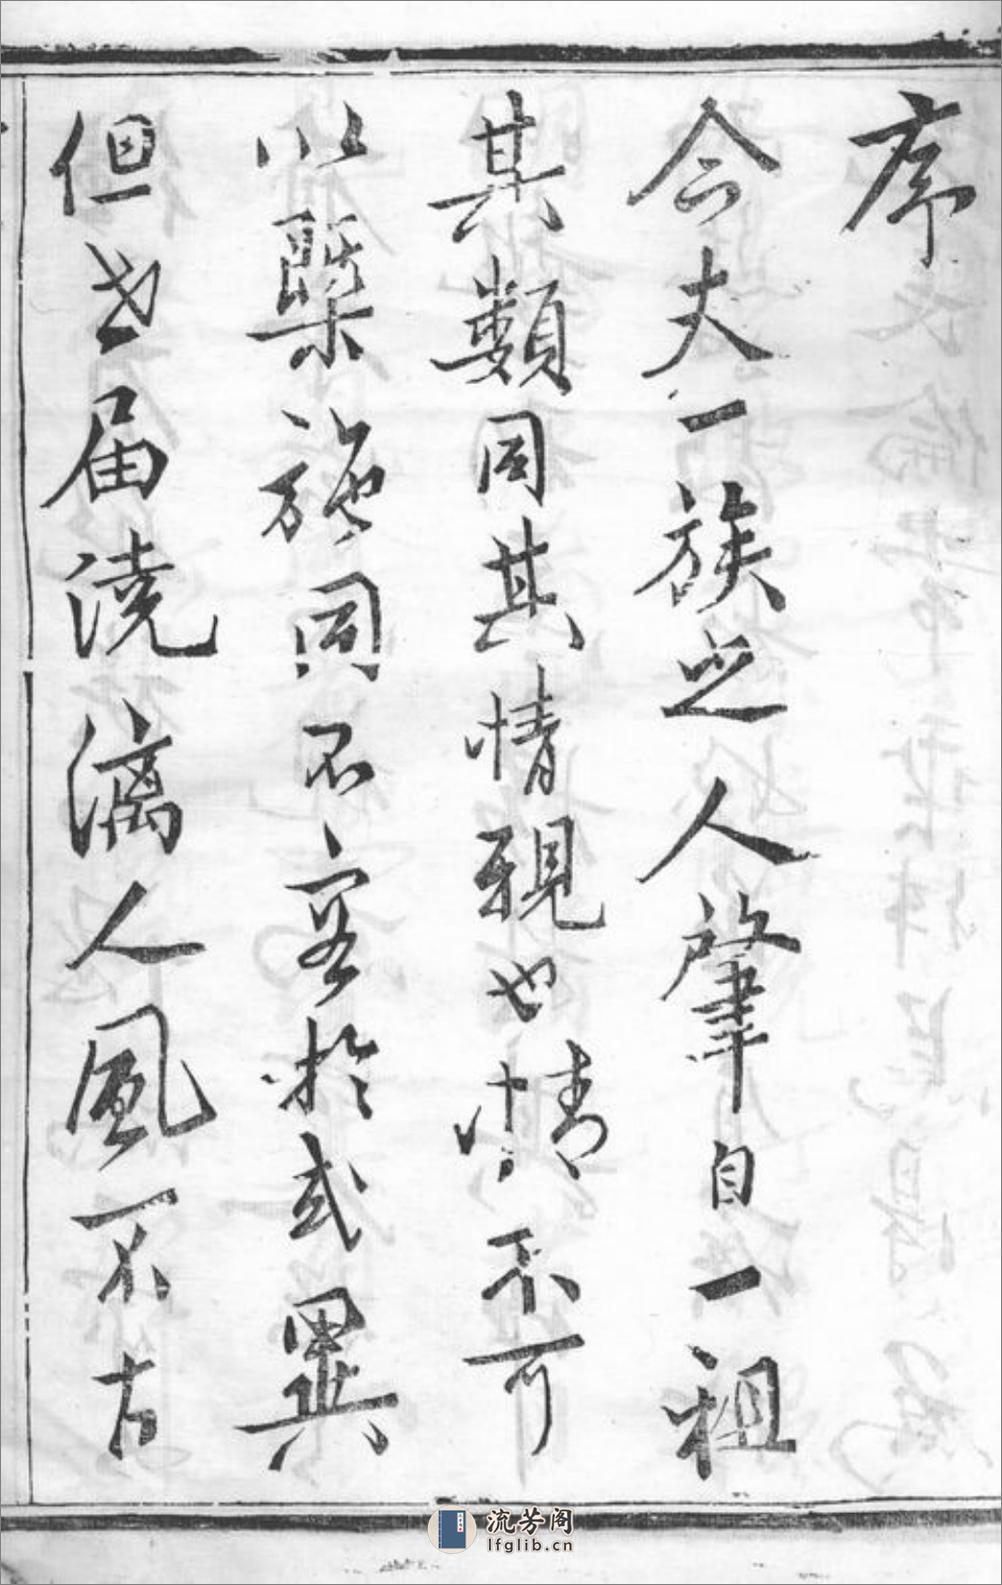 序
今夫一族之人肇自一祖
其類同其情親也情不可
以槩施同不容於或異
但世届澆漓人風不古
流芳阁
lfglib.cn